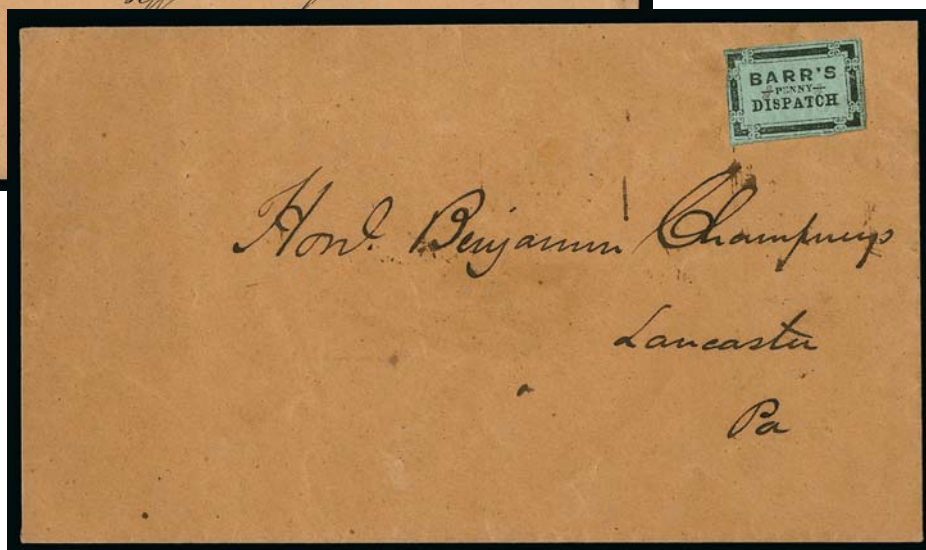 BARR'S
PENNY
DISPATCH
Honl. Benjamin Champneys
Lancaster
Pa